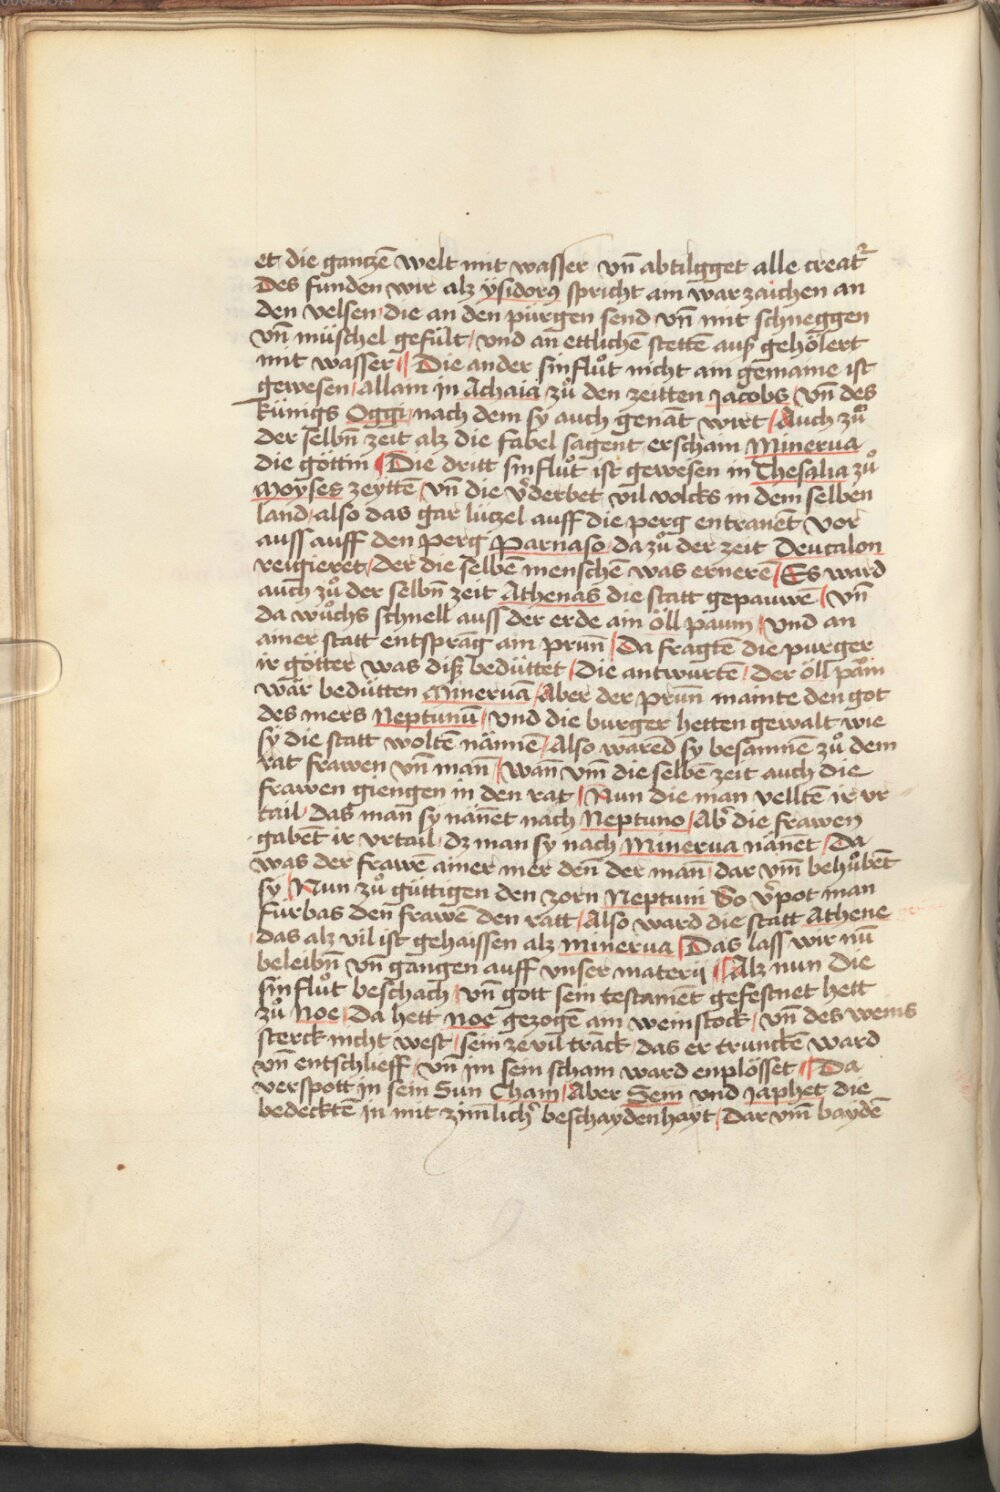 et die ganczē welt mit wasser vn̄ abtilgget alle creatr̄
Des funden wir alz ysidorꝰ spricht am warzaichen an
den velsen / die an den pürgen send vn̄ mit schneggen
vn̄ müschel gefült / vnd an ettlichē stettē auß gehölert
mit wasser / Die ander sinflůt nicht am gemaine ist
gewesen / allain in Achaia zů den zeitten Jacobs / vn̄ des
künigs Oggi / nach dem sy auch genāt wirt / Auch zů
der selbn̄ zeit alz die fabel sagent erschain Minerua
die göttin / Die dritt sinflůt ist gewesen in Thesalia zů
Moyses zeyttē / vn̄ die v̄derbet vil volcks in dem selben
land / also das gar lüczel auff die perg entranēt vor
auss auff den perg Parnaso / da zů der zeit Deucalon
reigieret / der die selbē menschē was ernerē / Es ward
auch zů der selbn̄ zeit Athenas die statt gepauwē / vn̄
da wůchs schnell auss der erde ain öll paum / vnd an
ainer statt entsprāg ain prun̄ / Da fragtē die purger
ir götter was diß bedüttet / Die antwurtē / der öll pam
wär bedütten Mineruā / Aber der prun̄ mainte den got
des mers Neptunū / vnd die burger hetten gewalt wie
sy die statt woltē nännē / Also wared sy besamnē zů dem
rat frawen vn̄ man̄ / wan̄ vm̄ die selbē zeit auch die
frawen giengen in den rat / Nun die man velltē ir vr
tail / das man sy nänēt nach Neptuno / Ab̄ die frawen
gabēt ir vrtail / dz man sy nach Minerua nänēt / Da
was der frawē ainer mer den̄ der man̄ / dar vm̄ behůbēt
sy / Nun zů güttigen den zorn Neptuni So v̄pot man
furbas den frawē den ratt / Also ward die statt Athene
das alz vil ist gehaissen alz Minerua / Das lass wir nū
beleibn̄ vn̄ gangen auff vnser materij / Alz nun die
sinflůt beschach / vn̄ gott sein testamēt gefestnet hett
zů Noe / Da hett Noe gezogē am weinstock / vn̄ des weins
sterck nicht west / sein ze vil trāck / das er trunckē ward
vn̄ entschlieff / vn̄ im sein scham ward enplösset / Da
verspott in sein Sun Cham / Aber Sem vnd Japhet die
bedecktē in mit zimlich̄ beschaydenhayt / Dar vm̄ baydē